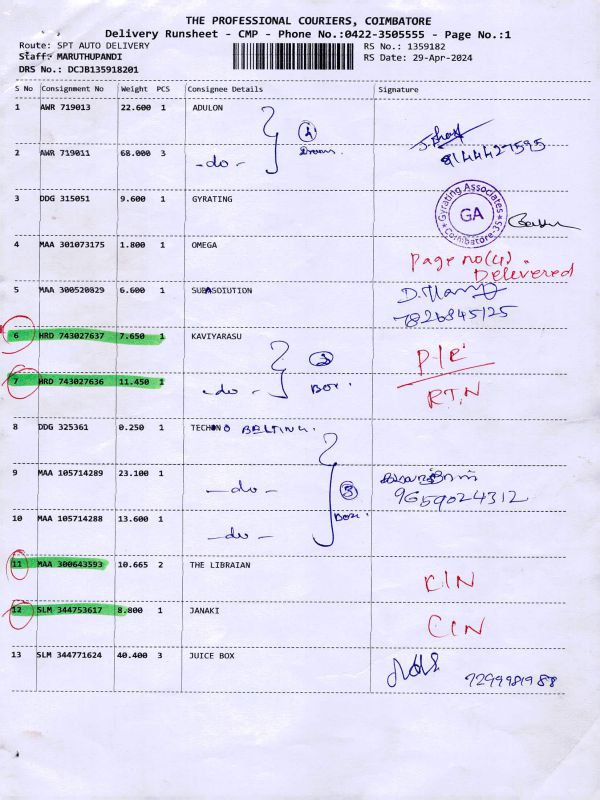 THE PROFESSIONAL COURIERS, COIMBATORE
Delivery Runsheet - CMP - Phone No.:0422-3505555 - Page No.:1
Route: SPT AUTO DELIVERY RS No.: 1359182
Staff: MARUTHUPANDI RS Date: 29-Apr-2024
DRS No.: DCJB135918201
S No Consignment No Weight PCS Consignee Details Signature
1 AWR 719013 22.600 1 ADULON
2 AWR 719011 68.000 3 -do- 8144427595
3 DDG 315051 9.600 1 GYRATING Gyrating Associates GA Coimbatore-35
4 MAA 301073175 1.800 1 OMEGA Page no(4). Delivered
5 MAA 300520829 6.600 1 7826845125
6 HRD 743027637 7.650 1 KAVIYARASU
7 HRD 743027636 11.450 1 -do- Box. RT,N
8 DDG 325361 0.250 1 TECHNO BELTING.
9 MAA 105714289 23.100 1 -do- 3 9659024312
10 MAA 105714288 13.600 1 -do- Box.
11 MAA 300643593 10.665 2 THE LIBRAIAN CIN
12 SLM 344753617 8.800 1 JANAKI CIN
13 SLM 344771624 40.400 3 JUICE BOX 7299981988